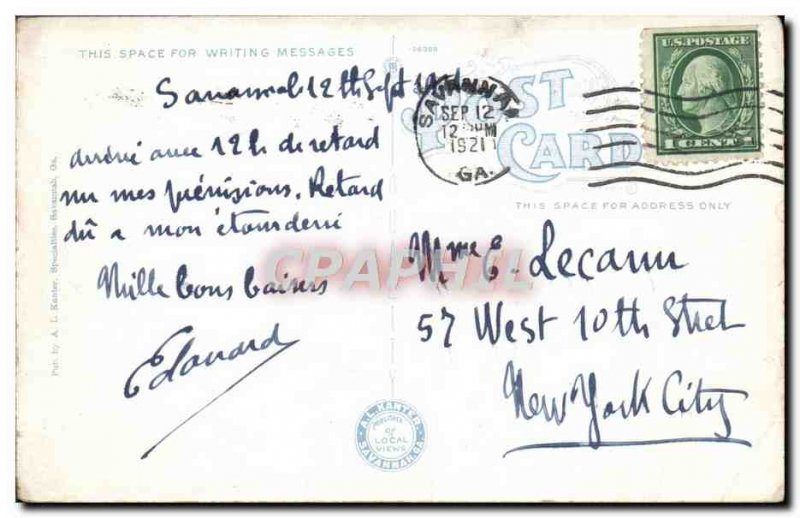 THIS SPACE FOR WRITING MESSAGES
POST
CARD
U.S. POSTAGE
1 CENT 1
SAVANNAH
SEP 12
12 PM
1921
GA.
THIS SPACE FOR ADDRESS ONLY
Savannah 12th Sept
arrivé avec 12h de retard
sur mes prévisions. Retard
dû a mon étourderie
Mille bons baisers
Edouard
Mme E. Lecann
57 West 10th Street
New York City
CPAPHIL
Pub. by A. L. Kanter, Specialties, Savannah, Ga.
A.L. KANTER
OF
LOCAL
VIEWS
SAVANNAH, GA.